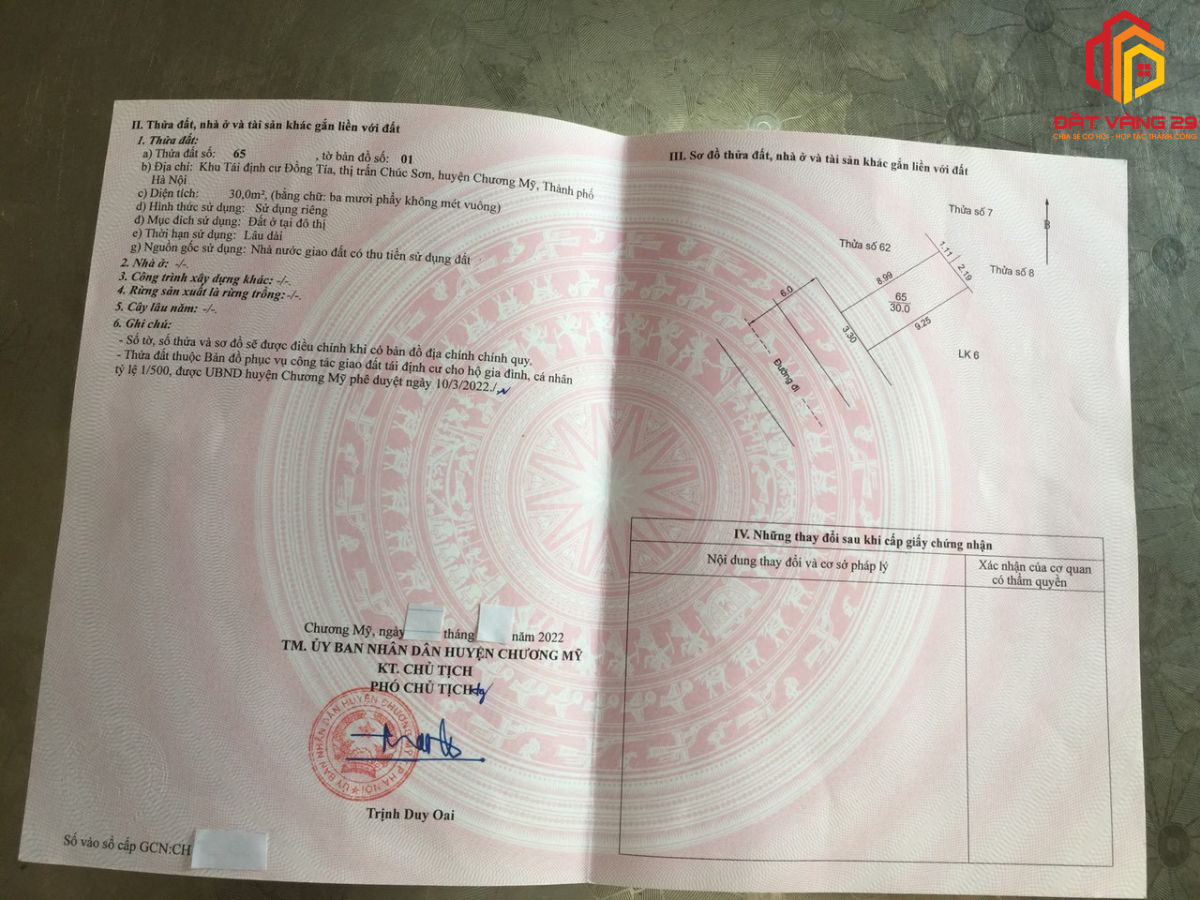 ĐẤT VÀNG 29
CHIA SẺ CƠ HỘI - HỢP TÁC THÀNH CÔNG
II. Thửa đất, nhà ở và tài sản khác gắn liền với đất
1. Thửa đất:
a) Thửa đất số: 65 , tờ bản đồ số: 01
b) Địa chỉ: Khu Tái định cư Đồng Tía, thị trấn Chúc Sơn, huyện Chương Mỹ, Thành phố
Hà Nội
c) Diện tích: 30,0m², (bằng chữ: ba mươi phẩy không mét vuông)
d) Hình thức sử dụng: Sử dụng riêng
đ) Mục đích sử dụng: Đất ở tại đô thị
e) Thời hạn sử dụng: Lâu dài
g) Nguồn gốc sử dụng: Nhà nước giao đất có thu tiền sử dụng đất
2. Nhà ở: -/-.
3. Công trình xây dựng khác: -/-.
4. Rừng sản xuất là rừng trồng: -/-.
5. Cây lâu năm: -/-.
6. Ghi chú:
- Số tờ, số thửa và sơ đồ sẽ được điều chỉnh khi có bản đồ địa chính chính quy.
- Thửa đất thuộc Bản đồ phục vụ công tác giao đất tái định cư cho hộ gia đình, cá nhân
tỷ lệ 1/500, được UBND huyện Chương Mỹ phê duyệt ngày 10/3/2022./.
Chương Mỹ, ngày tháng năm 2022
TM. ỦY BAN NHÂN DÂN HUYỆN CHƯƠNG MỸ
KT. CHỦ TỊCH
PHÓ CHỦ TỊCH
ỦY BAN NHÂN DÂN HUYỆN CHƯƠNG MỸ TP HÀ NỘI
Trịnh Duy Oai
Số vào sổ cấp GCN:CH
III. Sơ đồ thửa đất, nhà ở và tài sản khác gắn liền với đất
Thửa số 7
B
Thửa số 62
1.11
2.19
Thửa số 8
8.99
6.0
65
30.0
3.30
9.25
LK 6
Đường đi
IV. Những thay đổi sau khi cấp giấy chứng nhận
Nội dung thay đổi và cơ sở pháp lý
Xác nhận của cơ quan
có thẩm quyền